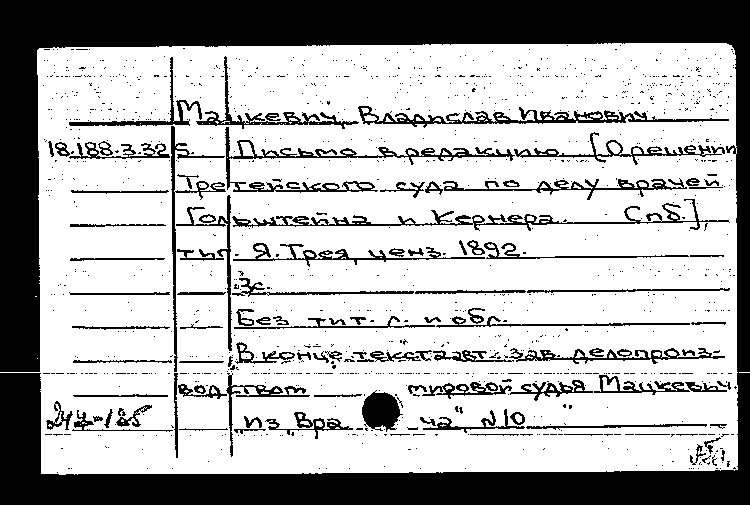 Мацкевич, Владислав Иванович.
18.188.3.325. Письмо в редакцию. [О решении
Третейского суда по делу врачей
Гольштейна и Кернера. Спб],
тип. Я. Трея, ценз. 1892.
3с.
Без тит. л. и обл.
В конце текста авт.: зав. делопроиз-
водством мировой судья Мацкевич.
242-125 "Из "Врача", N10"